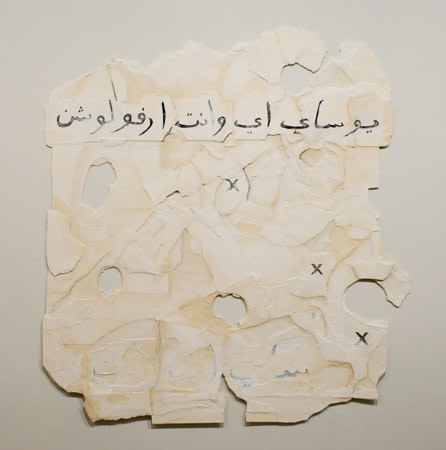 يو ساي اي وانت ارفولوشن
x
x
x